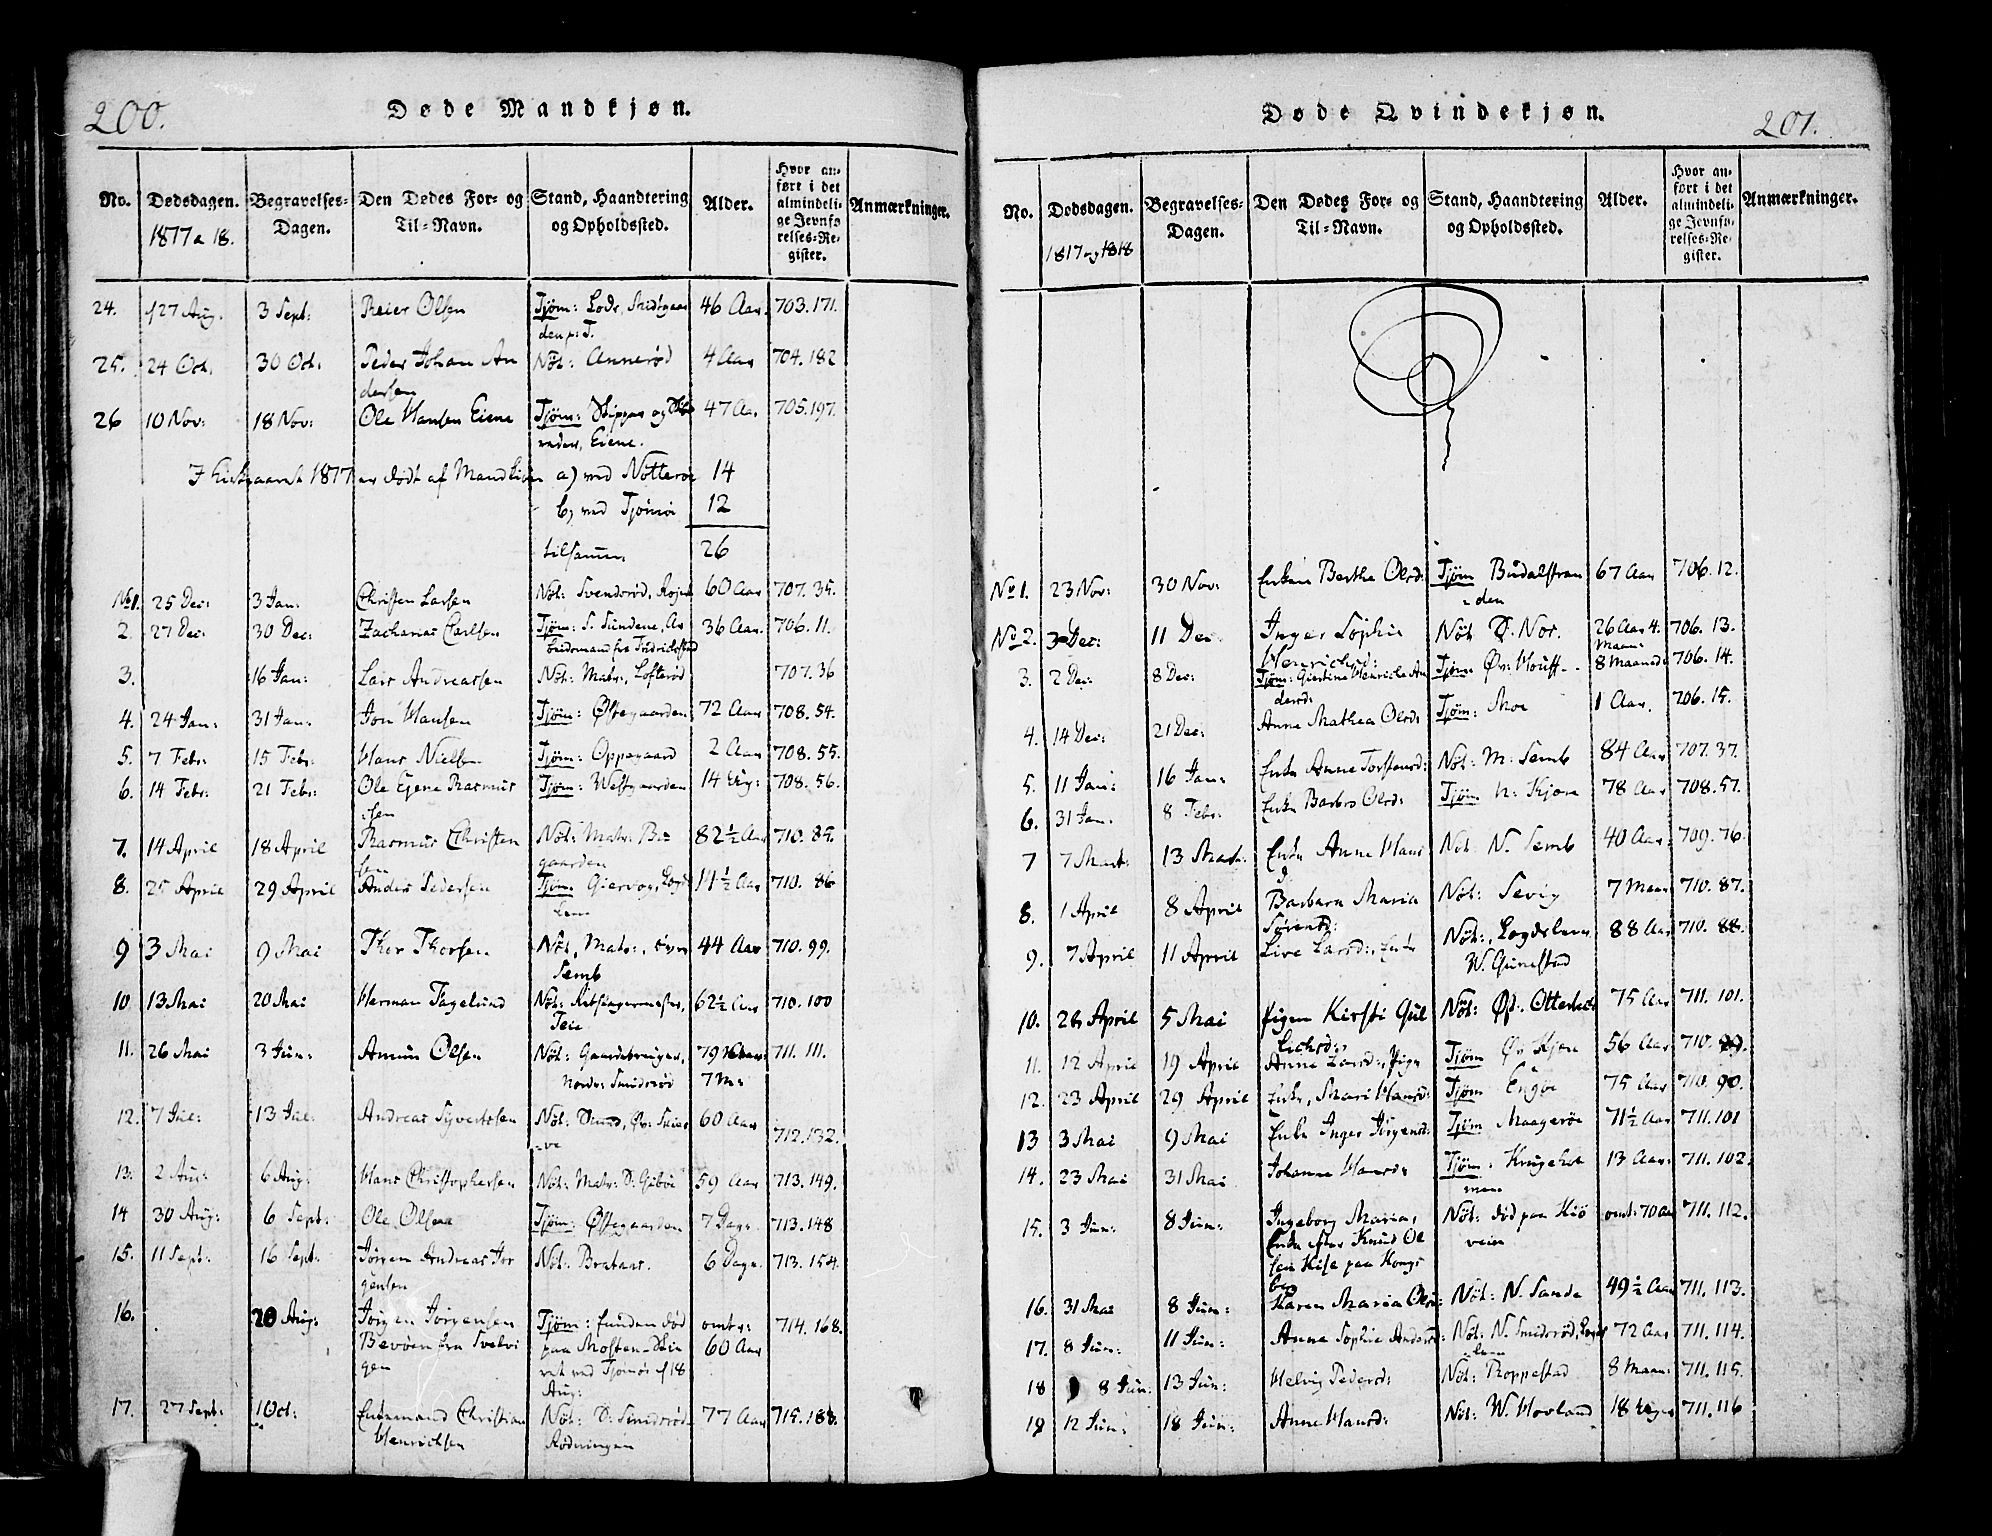 200.
Døde Mandkjøn.
No. Dødsdagen. 1817 a 18. Begravelses-Dagen. Den Dødes For- og Til-Navn. Stand, Haandtering og Opholdssted. Alder. Hvor anført i det almindelige Jevnførelses-Register. Anmærkninger.
24. 27 Aug. 3 Sept: Reier Olsen Tjøm: Lods, 46 Aar. 703.171.
25. 24 Oct. 30 Oct: Peder Johan An Nöt: Annerød 4 Aar 704.182
dersen
26 10 Nov: 18 Nov: Ole Hansen Eiene Tjøm: Skipper og 47 Aar 705.197.
Eiene.
I Kirkeaaret 1817 er dödt af Mandkiön a) ved Nötterøe 14
b) ved Tjömöe 12
tilsamm. 26
No 1. 25 Dec: 3 Jan: Christen Larsen Nöt: Svendsröd, 60 Aar 707.35.
2. 27 Dec: 30 Dec: Zacharias Carlsen Tjøm: S. Sundene, Ar 36 Aar. 706.11.
beidsmand fra Fredrichstad
3. 16 Jan: Lars Andreassen Nöt: Matr:, Lofteröd 707.36
4. 24 Jan: 31 Jan: Jon Hansen Tjøm: Østegaarden 72 Aar 708.54.
5. 7 Febr: 15 Febr: Hans Nielsen Tjøm: Oppegaard 2 Aar 708.55.
6. 14 Febr: 21 Febr: Ole Ejene Rasmus Tjøm: Westgaarden 14 Uig: 708.56.
sen
7. 14 April 18 April Rasmus Christen Nöt: Matr: Bu 82½ Aar 710.85.
sen gaarden
8. 25 April 29 April Anders Pedersen Tjøm. Giervog, Logs 14½ Aar 710.86
lem
9 3 Mai 9 Mai Thor Thorsen Nöt, Matr:, 44 Aar 710.99.
Semb
10. 13 Mai 20 Mai Herman Fagelund Nöt: 62½ Aar 710.100
Teie
11. 26 Mai 3 Jun: Amun Olsen Nöt: Gaardebruger, 79 Aar: 711.111.
Nordr: Smidsröd 7 M:
12. 7 Jul: 13 Jul: Andreas Syvertsen Nöt: Dreng, Øv: 60 Aar 712.132.
13. 2 Aug: 6 Aug: Hans Christophersen Nöt: Matr: S. Gibøe 59 Aar 713.149.
14 30 Aug: 6 Sept: Ole Olsen Tjøm: Østegaarden 7 Dage 713.148
15. 11 Sept: 16 Sept: Jörgen Andreas Jör Nöt: Brataas. 6 Dage. 713.154.
gensen
16. 20 Aug: Jörgen Jörgensen Tjøm: funden död omtr: 714.168.
fra Svelvi paa 60 Aar
gen ved Tjömöe d 18
Aug:
17. 27 Sept: 1 Oct: Enkemand Christian Nöt: S: Smidsröd 77 Aar 715.188.
Henrichsen Rødningen
Døde Qvindekjøn.
201.
No. Dødsdagen. 1817 og 1818 Begravelses-Dagen. Den Dødes For- og Til-Navn. Stand, Haandtering og Opholdssted. Alder. Hvor anført i det almindelige Jevnførelses-Register. Anmærkninger.
No 1. 23 Nov: 30 Nov: Enken Berthe Olsd: Tjøm Budalstran 67 Aar 706.12.
den
No 2. 3 Dec: 11 Dec Inger Sophie Nöt S. Nor. 26 Aar 4. 706.13.
Henrichsd: Maan:
3. 2 Dec: 8 Dec: Tjøm: Giertine Henriche An Tjøm: Øv: Houff 8 Maaned: 706.14.
dersd:
4. 14 Dec: 21 Dec: Anne Mathea Olsd: Tjøm: Moe 1 Aar. 706.15.
5. 11 Jan: 16 Jan: Enke Anne Torstensd: Nöt: M: Semb 84 Aar 707.37.
6. 31 Jan. 8 Febr: Enke Barbro Olsd: Tjøm N: Kjøen 78 Aar 708.57.
7 7 Mart: 13 Mart: Enke Anne Hans Nöt. N. Semb 40 Aar: 709.76.
d.
8. 1 April 8 April Barbara Maria Nöt: Sevig 7 Maan: 710.87.
Sörensd:
9. 7 April 11 April Live Larsd:, Enke Nöt:, Logdslem 88 Aar 710.88.
W. Gunestad
10. 26 April 5 Mai Pigen Kirsti Gul Nöt: Øst. Otterbech 75 Aar 711.101.
lichsd:
11. 12 April 19 April Anne Larsd:, Pige Tjøm Øv Kjøn 56 Aar 710.89.
12. 23 April 29 April Enke, Mari Hansd: Tjøm Engöe 75 Aar 710.90.
13 3 Mai 9 Mai Enke Inger Jörgensd: Tjøm Maageröe 71½ Aar 711.101
14. 23 Mai 31 Mai Johanne Hansd: Tjøm: Krugehot 13 Aar: 711.102.
15. 3 Jun: 8 Jun: Ingeborg Maria, Nöt: död paa Kiö omt: 70 Aar 711.112.
Enke efter Knud Ol veien
sen Hise paa Kongs
berg
16. 31 Mai 8 Jun: Karen Maria Olsd: Nöt: N. Sande 49½ Aar 711.113.
17. 8 Jun: 11 Jun: Anne Sophie Andersd: Nöt: N. Smidsröd, Logds 72 Aar 711.114.
lem
18 8 Jun: 13 Jun: Helvig Pedersd: Nöt: Roppestad 8 Maan: 711.115.
19 12 Jun: 18 Jun: Anne Hansd: Nöt: W. Hovland 18 Uger 711.116